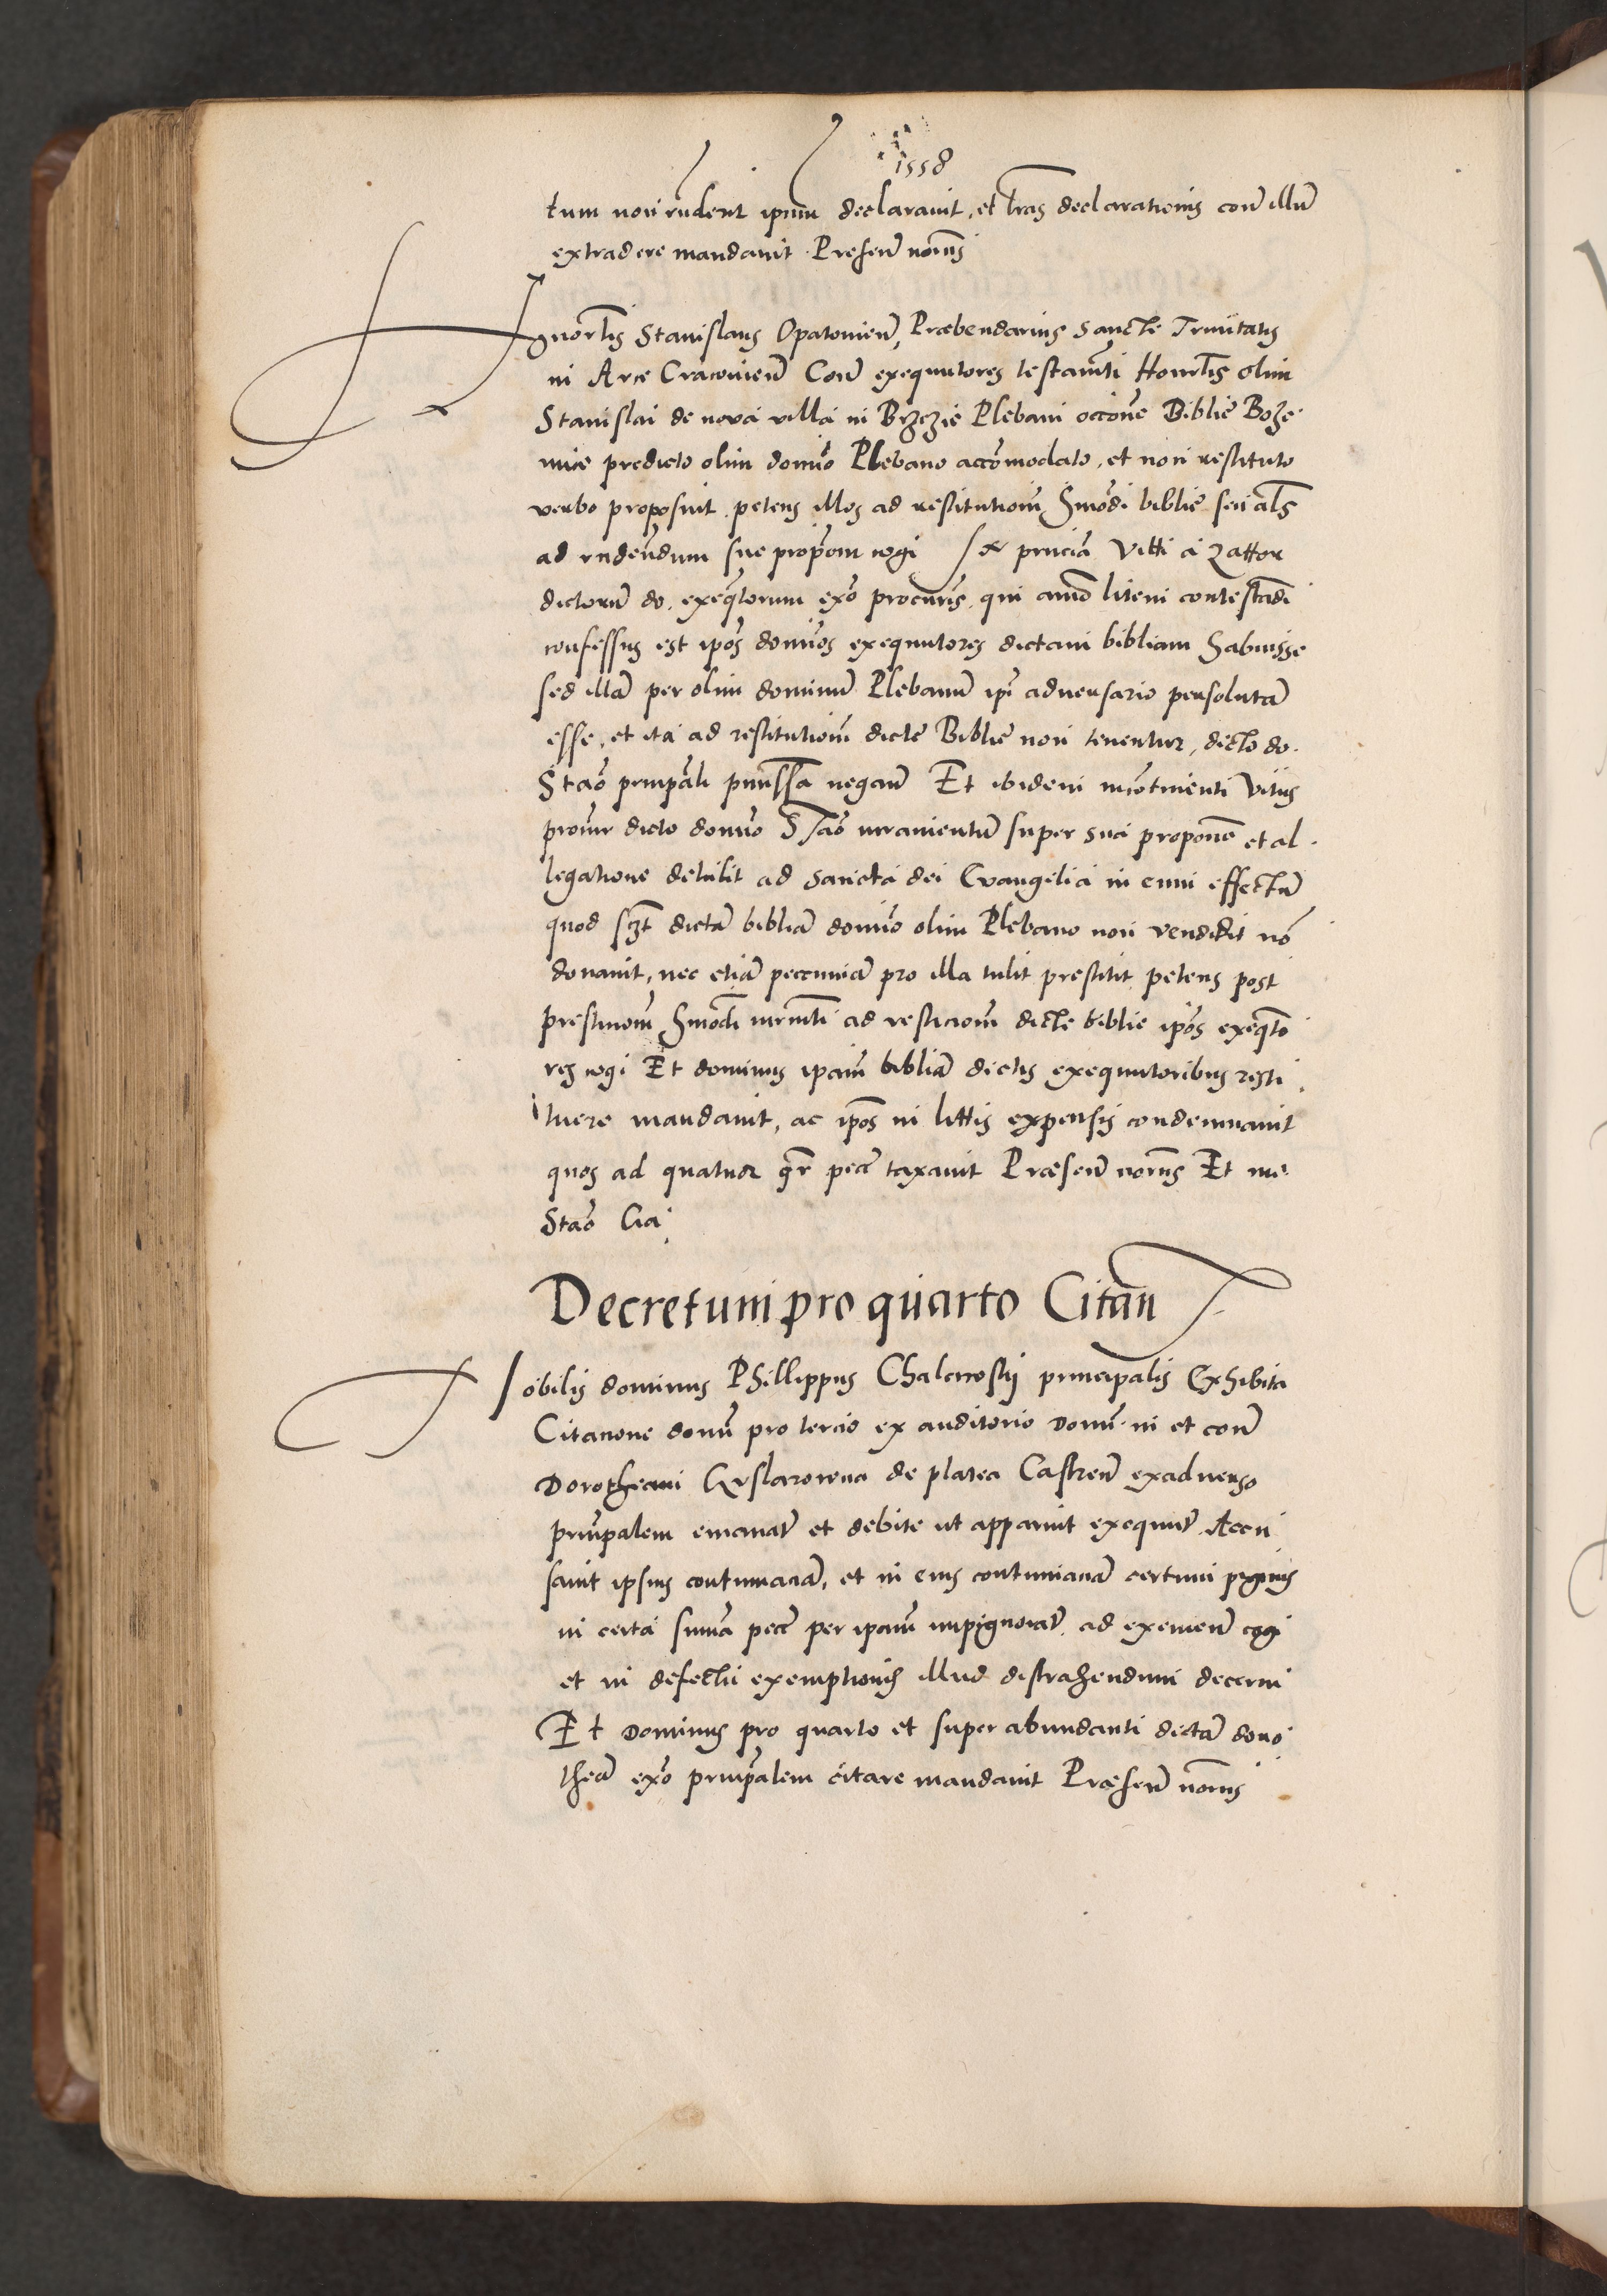 1558
tum non rndent ipsum declaravit, et lras declarationis con illu
extradere mandavit. Presen nonis
Honorlis Stanislaus Opatovien, Præbendarius Sancte Trinitatis
in Arce Cracovien Con exequutores testamti Honorlis olim
Stanislai de nova villa in Brzezie Plebani occone Biblie Boże
predicto olim domio Plebano accomodato, et non restituto
verbo proposuit petens illos ad restitutionem hmodi biblie seu als
ad rndendum sue propoom cogi In pnciã Vitti a Zattor
dictoru do. exeqtorum exo procuris. qui animo litem contestadi
confessus est ipos domios exequutores dictam bibliam habuisse
sed illã per olim dominu Plebanu ipi adversario persolutã
esse, et ita ad restitutionem dicte Biblie non tenentur, dicto do.
Stao prinpali pmissa negan Et ibidem incontinenti Vitus
procur dicto domio Stao iuramentu super sua propone et al
legatione detulit ad sancta dei Evangelia in eum effectu
quod sczt dictã bibliã domio olim Plebano non vendidit nõ
donavit, nec etiã peccuniã pro illa tulit prestitit petens post
prestitionem hmodi iurmti ad resticionem dicte biblie ipos exeqto
res cogi Et dominus ipsam bibliã dictis exequutoribus resti
tuere mandavit, ac ipos in littis expensis condemnavit
quos ad quatuor gr pec taxavit Præsen nonis Et me
Stao
Decretum pro quarto Citan
Nobilis dominus Phillippus principalis Exhibita
Citacione domi pro tercio ex auditorio Domi. ni et con
Dorotheam de platea Castren exadverso
prinpalem emanat et debite ut apparuit exequut Accu
savit ipsius contumaciã, et in eius contumaciã certum pignus
in certa summa pec per ipsam impignorat ad exemen cogi
et in defectu exemptionis illud distrahendum decerni
Et Dominus pro quarto et super abundanti dictã doro
theã exo prinpalem citare mandavit Præsen nonis